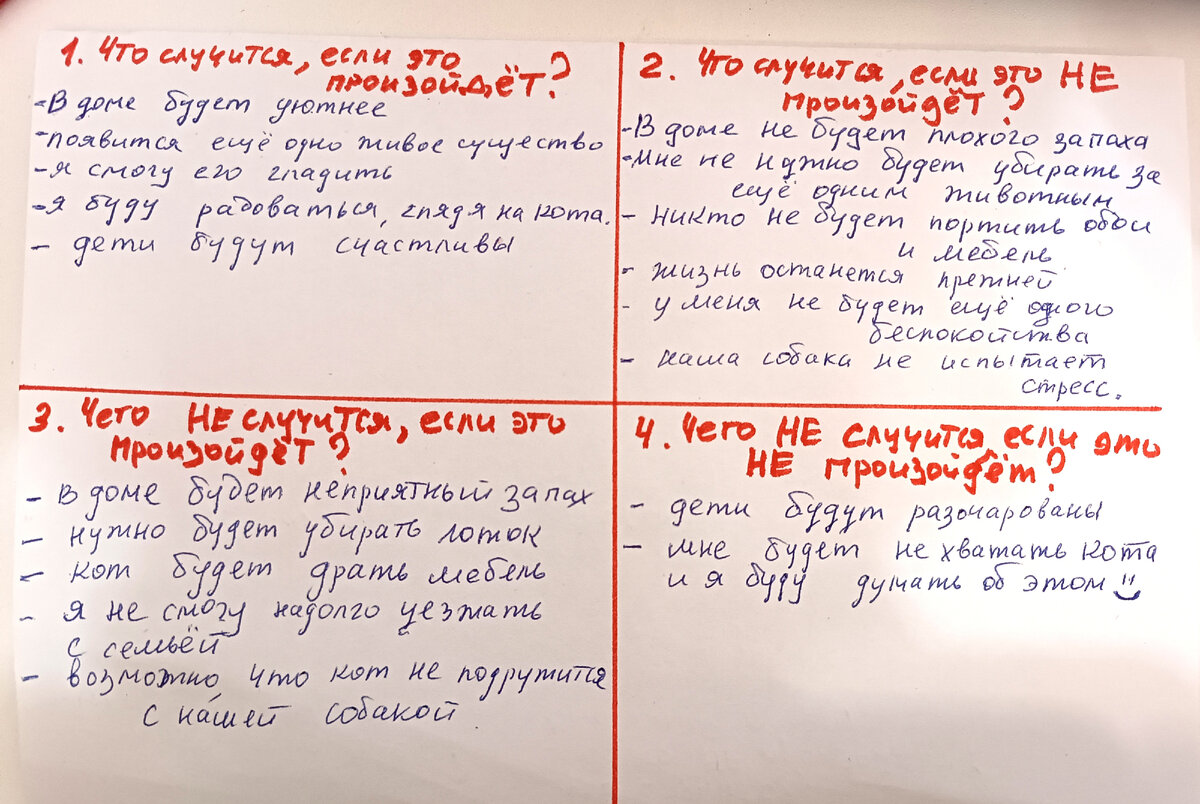 1. Что случится, если это
произойдёт?
- В доме будет уютнее
- появится ещё одно живое существо
- я смогу его гладить
- я буду радоваться, глядя на кота.
- дети будут счастливы
2. Что случится, если это НЕ
произойдёт?
- В доме не будет плохого запаха
- мне не нужно будет убирать за
ещё одним животным
- никто не будет портить обои
и мебель
- жизнь останется прежней
- у меня не будет ещё одного
беспокойства
- наша собака не испытает
стресс.
3. Чего НЕ случится, если это
произойдёт?
- в доме будет неприятный запах
- нужно будет убирать лоток
- кот будет драть мебель
- я не смогу надолго уезжать
с семьёй
- возможно, что кот не подружится
с нашей собакой.
4. Чего НЕ случится, если это
НЕ произойдёт?
- дети будут разочарованы
- мне будет не хватать кота
и я буду думать об этом